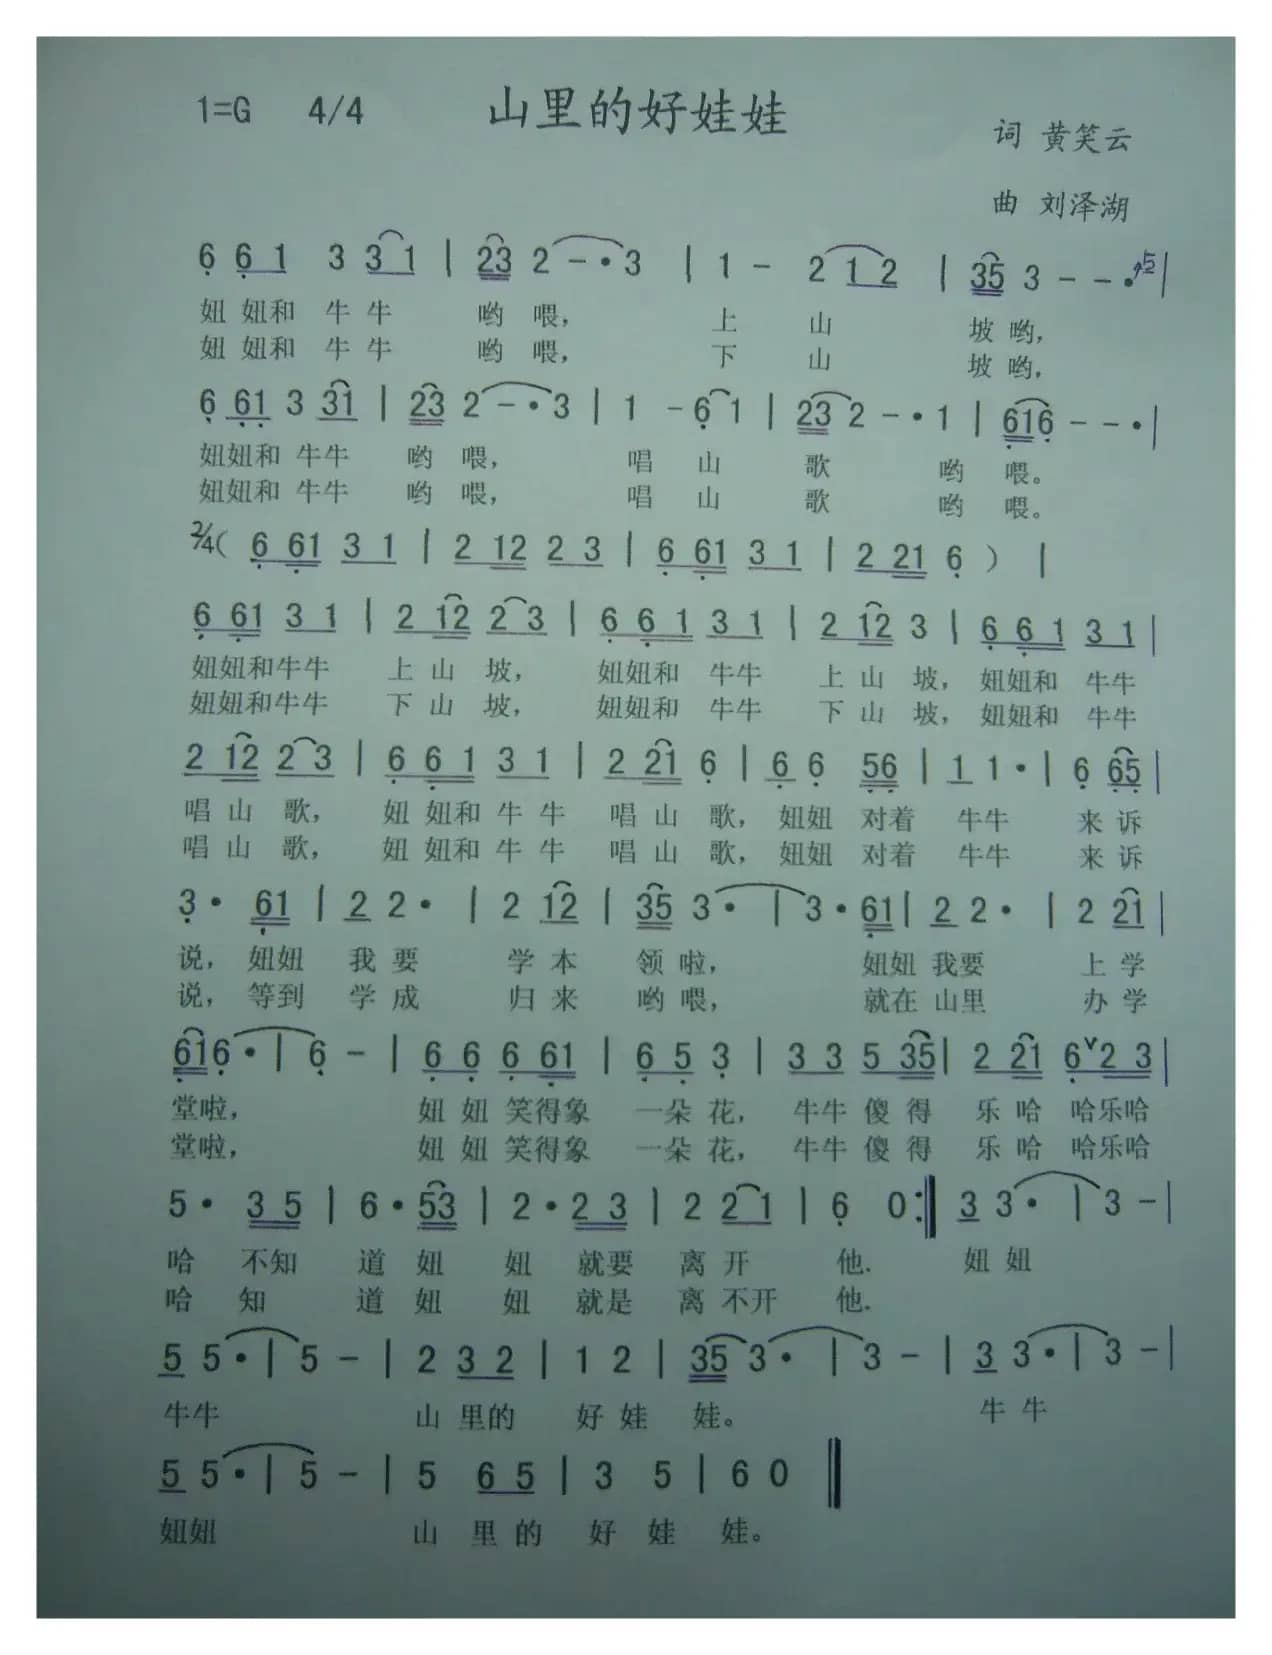 1=G 4/4 山里的好娃娃
词 黄笑云
曲 刘泽湖
6 6 1 3 3 1 | 23 2 - · 3 | 1 - 2 1 2 | 35 3 - - · 52 |
妞 妞和 牛 牛 哟 喂， 上 山 坡 哟，
妞 妞和 牛 牛 哟 喂， 下 山 坡 哟，
6 61 3 31 | 23 2 - · 3 | 1 - 6 1 | 23 2 - · 1 | 616 - - · |
妞妞和 牛牛 哟 喂， 唱 山 歌 哟 喂。
妞妞和 牛牛 哟 喂， 唱 山 歌 哟 喂。
2/4 ( 6 61 3 1 | 2 12 2 3 | 6 61 3 1 | 2 21 6 ) |
6 61 3 1 | 2 12 2 3 | 6 6 1 3 1 | 2 12 3 | 6 6 1 3 1 |
妞妞和牛牛 上 山 坡， 妞妞和 牛牛 上 山 坡， 妞妞和 牛牛
妞妞和牛牛 下 山 坡， 妞妞和 牛牛 下 山 坡， 妞妞和 牛牛
2 12 2 3 | 6 6 1 3 1 | 2 21 6 | 6 6 56 | 1 1 · | 6 65 |
唱 山 歌， 妞 妞和 牛 牛 唱 山 歌， 妞妞 对着 牛牛 来 诉
唱 山 歌， 妞 妞和 牛 牛 唱 山 歌， 妞妞 对着 牛牛 来 诉
3 · 61 | 2 2 · | 2 12 | 35 3 · | 3 · 61 | 2 2 · | 2 21 |
说， 妞妞 我 要 学 本 领 啦， 妞妞 我要 上 学
说， 等到 学 成 归 来 哟 喂， 就在 山里 办 学
616 · | 6 - | 6 6 6 61 | 6 5 3 | 3 3 5 35 | 2 21 6 ∨ 2 3 |
堂啦， 妞 妞 笑得象 一朵 花， 牛牛 傻 得 乐 哈 哈乐哈
堂啦， 妞 妞 笑得象 一朵 花， 牛牛 傻 得 乐 哈 哈乐哈
5 · 3 5 | 6 · 53 | 2 · 2 3 | 2 2 1 | 6 0 :‖ 3 3 · | 3 - |
哈 不知 道 妞 妞 就要 离 开 他. 妞 妞
哈 知 道 妞 妞 就是 离 不开 他.
5 5 · | 5 - | 2 3 2 | 1 2 | 35 3 · | 3 - | 3 3 · | 3 - |
牛牛 山 里的 好 娃 娃。 牛 牛
5 5 · | 5 - | 5 6 5 | 3 5 | 6 0 ‖
妞妞 山 里 的 好 娃 娃。